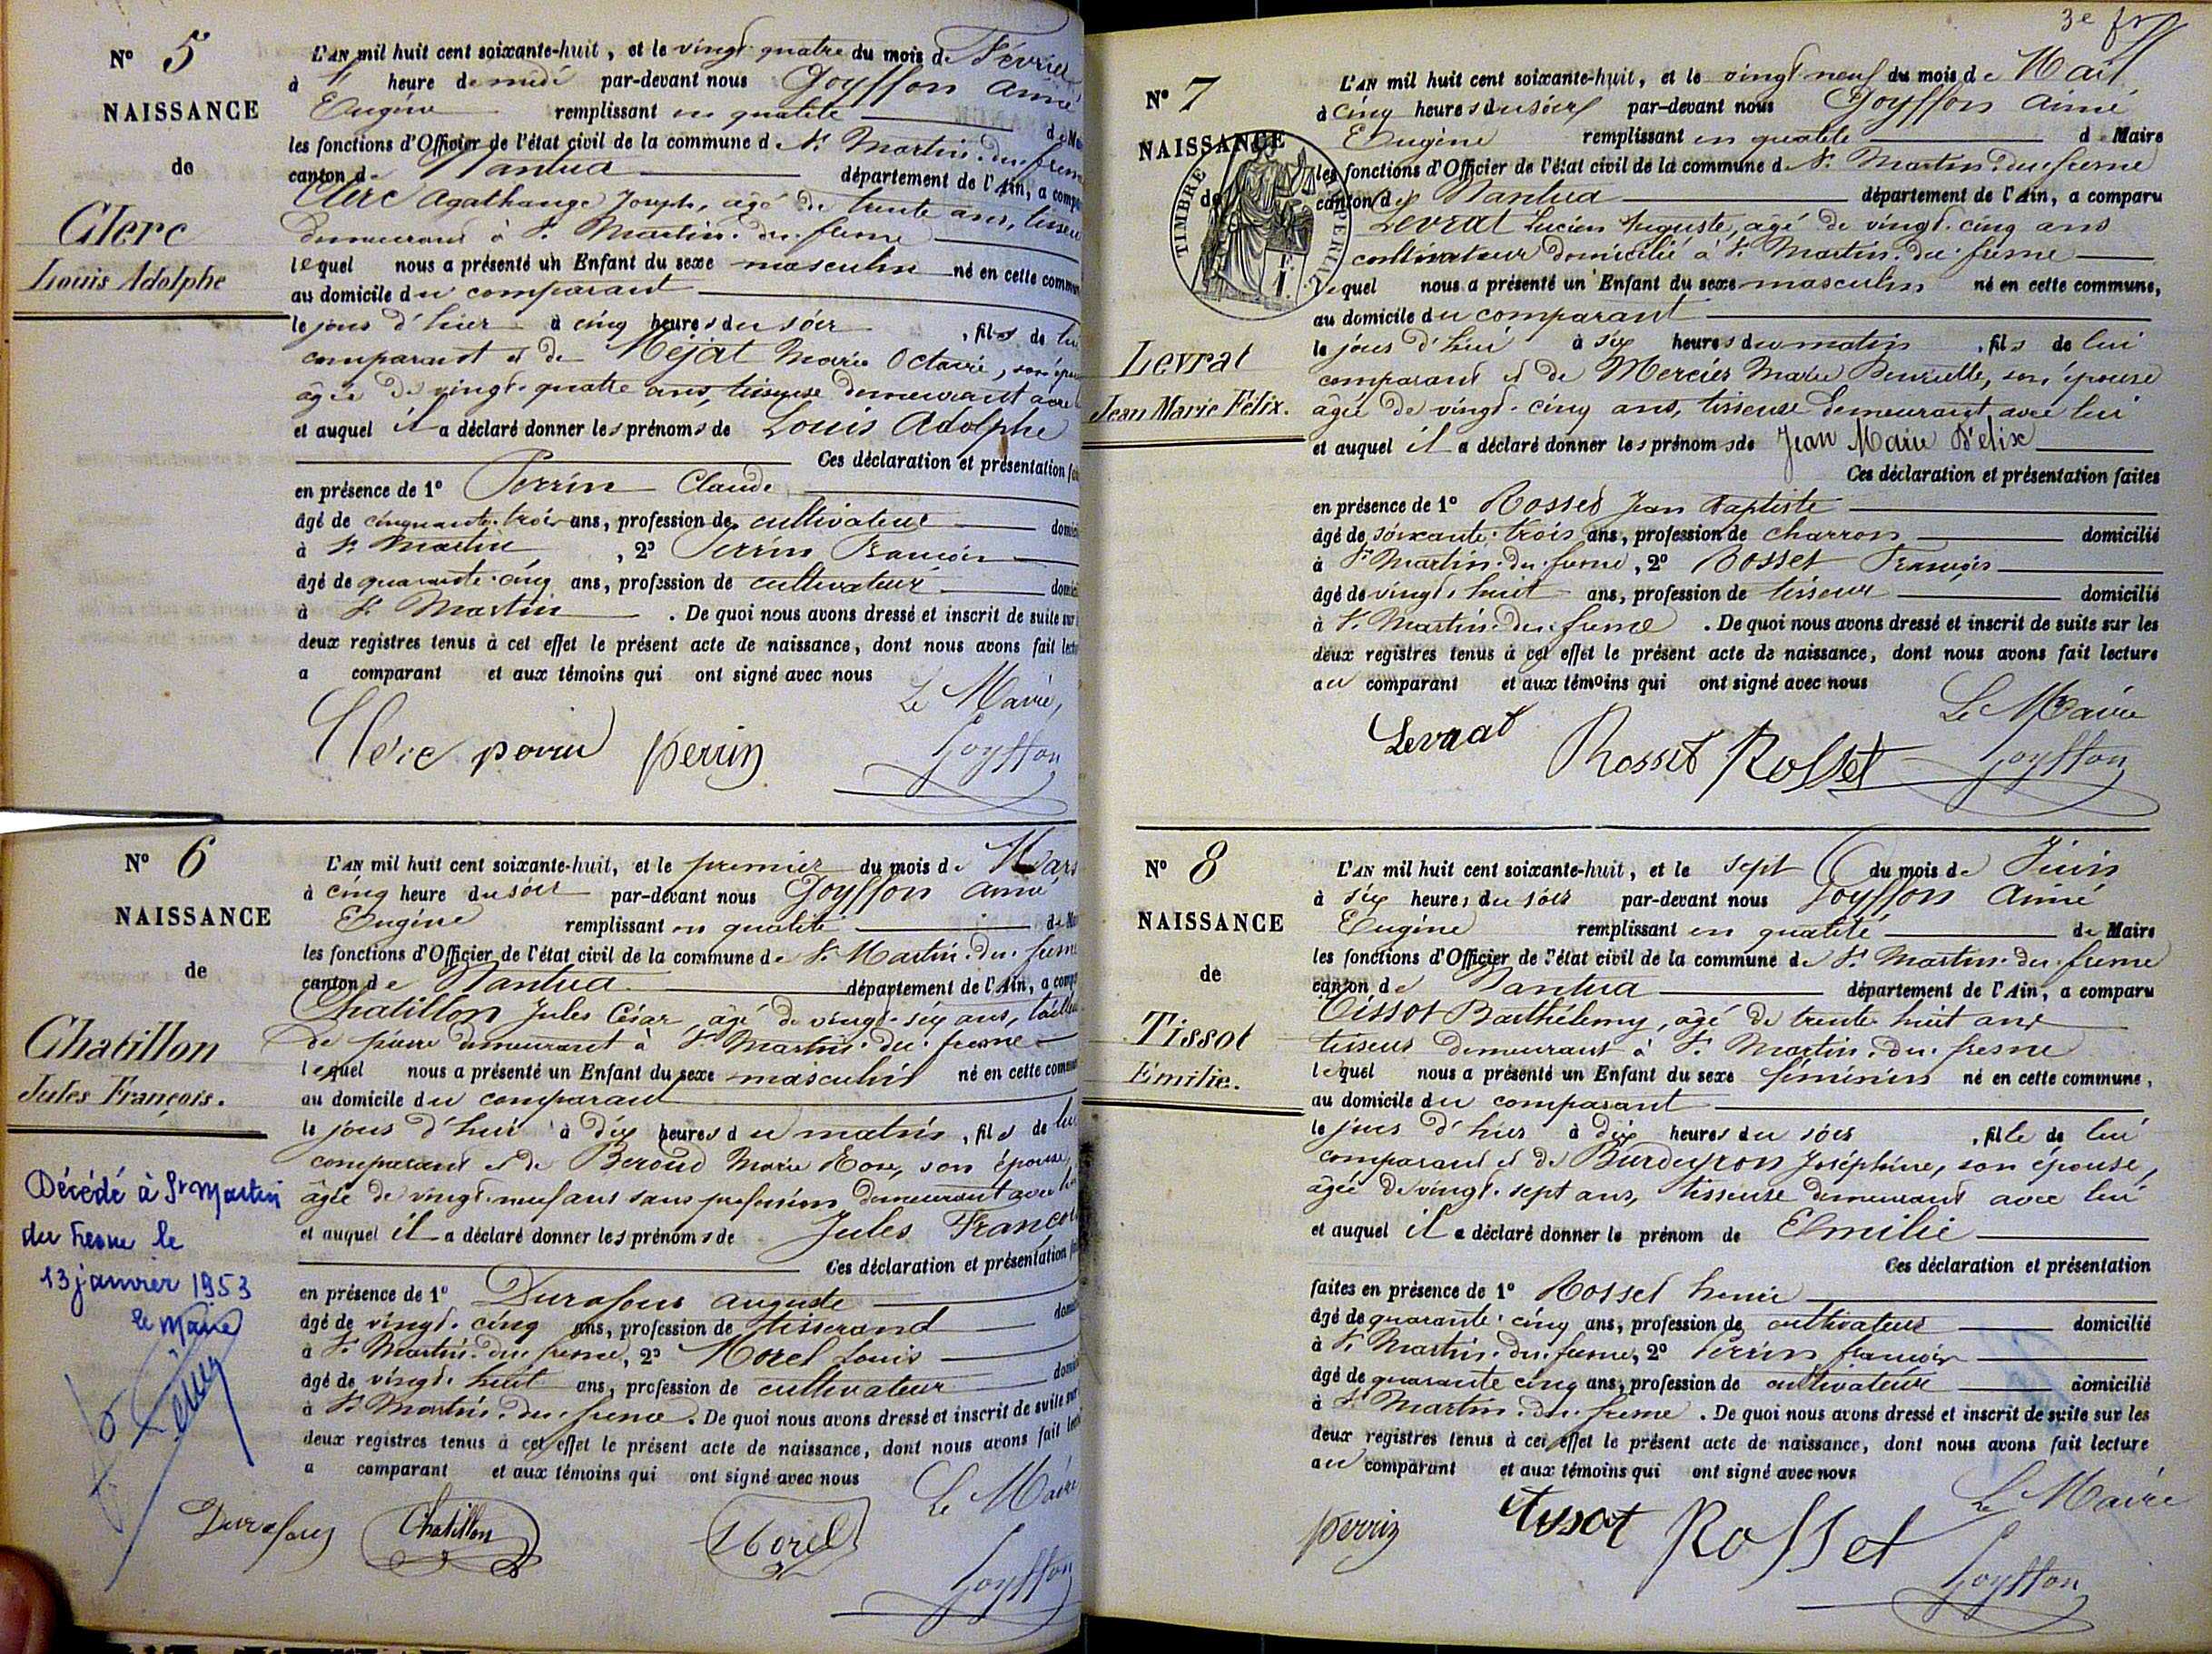 N° 5
NAISSANCE
de
Clerc
Louis Adolphe
L'AN mil huit cent soixante-huit, et le vingt quatre du mois de Février
à heure de midi par-devant nous Goyffon Aimé
Eugène remplissant en qualité de
les fonctions d'Officier de l'état civil de la commune d St Martin-du-fresne
canton de Nantua département de l'Ain, a comparu
Clerc Agathange Joseph, âgé de trente ans, tisseur
demeurant à St Martin-du-fresne
lequel nous a présenté un Enfant du sexe masculin né en cette commune
au domicile du comparant
le jour d'hier à cinq heures du soir, fils de lui
comparant et de Méjat Marie Octavie, son épouse
âgée de vingt-quatre ans, tisseuse demeurant avec
et auquel il a déclaré donner les prénoms de Louis Adolphe
Ces déclaration et présentation
en présence de 1° Perrin Claude
âgé de cinquante-trois ans, profession de cultivateur
à St Martin, 2° Perrin François
âgé de quarante-cinq ans, profession de cultivateur
à St Martin. De quoi nous avons dressé et inscrit de suite sur
deux registres tenus à cet effet le présent acte de naissance, dont nous avons fait lecture
a comparant et aux témoins qui ont signé avec nous
Le Maire,
Clerc perrin perrin Goyffon
N° 6
NAISSANCE
de
Chatillon
Jules François.
Décédé à St Martin
du Fresne le
13 janvier 1953
le Maire
L'AN mil huit cent soixante-huit, et le premier du mois de Mars
à cinq heure du soir par-devant nous Goyffon Aimé
Eugène remplissant en qualité de
les fonctions d'Officier de l'état civil de la commune de St Martin-du-fresne
canton de Nantua département de l'Ain, a comparu
Chatillon Jules César, âgé de vingt-six ans, tailleur
de pierre demeurant à St Martin-du-fresne
lequel nous a présenté un Enfant du sexe masculin né en cette commune
au domicile du comparant
le jour d'hui à dix heures du matin, fils de lui
comparant et de Beroud Marie Rose, son épouse,
âgée de vingt-neuf ans sans profession demeurant avec lui
et auquel il a déclaré donner les prénoms de Jules François
Ces déclaration et présentation
en présence de 1° Durafour Auguste
âgé de vingt-cinq ans, profession de tisserand
à St Martin-du-fresne, 2° Morel Louis
âgé de vingt-huit ans, profession de cultivateur
à St Martin-du-fresne. De quoi nous avons dressé et inscrit de suite sur
deux registres tenus à cet effet le présent acte de naissance, dont nous avons fait
a comparant et aux témoins qui ont signé avec nous
Le Maire
Durafour Chatillon Morel
Goyffon
3e
N° 7
NAISSANCE
de
TIMBRE IMPÉRIAL
Levrat
Jean Marie Félix.
L'AN mil huit cent soixante-huit, et le vingt-neuf du mois de Mai
à cinq heures du soir par-devant nous Goyffon Aimé
Eugène remplissant en qualité de Maire
les fonctions d'Officier de l'état civil de la commune d St Martin-du-fresne
canton de Nantua département de l'Ain, a comparu
Levrat Lucien Auguste, âgé de vingt-cinq ans
cultivateur domicilié à St Martin-du-fresne
lequel nous a présenté un Enfant du sexe masculin né en cette commune,
au domicile du comparant
le jour d'hui à six heures du matin, fils de lui
comparant et de Mercier Marie Henriette, son épouse
âgée de vingt-cinq ans, tisseuse demeurant avec lui
et auquel il a déclaré donner les prénoms de Jean Marie Félix
Ces déclaration et présentation faites
en présence de 1° Rosset Jean Baptiste
âgé de soixante-trois ans, profession de charron domicilié
à St Martin-du-fresne, 2° Rosset François
âgé de vingt-huit ans, profession de tisseur domicilié
à St Martin-du-fresne. De quoi nous avons dressé et inscrit de suite sur les
deux registres tenus à cet effet le présent acte de naissance, dont nous avons fait lecture
au comparant et aux témoins qui ont signé avec nous
Le Maire
Levrat Rosset Rosset Goyffon
N° 8
NAISSANCE
de
Tissot
Emilie.
L'AN mil huit cent soixante-huit, et le sept du mois de Juin
à six heures du soir par-devant nous Goyffon Aimé
Eugène remplissant en qualité de Maire
les fonctions d'Officier de l'état civil de la commune de St Martin-du-fresne
canton de Nantua département de l'Ain, a comparu
Tissot Barthélemy, âgé de trente-huit ans
tisseur demeurant à St Martin-du-fresne
lequel nous a présenté un Enfant du sexe féminin né en cette commune,
au domicile du comparant
le jour d'hier à dix heures du soir, fille de lui
comparant et de Burdeyron Joséphine, son épouse,
âgée de vingt-sept ans, tisseuse demeurant avec lui
et auquel il a déclaré donner le prénom de Emilie
Ces déclaration et présentation
faites en présence de 1° Rosset
âgé de quarante-cinq ans, profession de cultivateur domicilié
à St Martin-du-fresne, 2° Perrin françois
âgé de quarante cinq ans, profession de cultivateur domicilié
à St Martin-du-fresne. De quoi nous avons dressé et inscrit de suite sur les
deux registres tenus à cet effet le présent acte de naissance, dont nous avons fait lecture
au comparant et aux témoins qui ont signé avec nous
Le Maire
perrin Tissot Rosset
Goyffon